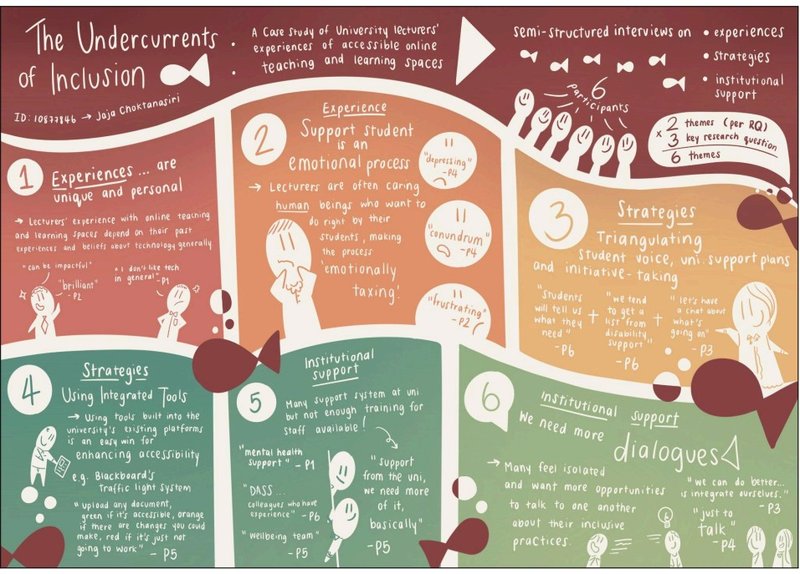 The Undercurrents
of Inclusion
ID: 10877846 → Jaja Choktanasiri
A Case Study of University lecturers'
experiences of accessible online
teaching and learning spaces
semi-structured interviews on
• experiences
• strategies
• institutional
support
6
participants
2 themes (per RQ)
× 3 key research question
6 themes
1
Experiences... are
unique and personal
→ Lecturers' experience with online teaching
and learning spaces depend on their past
experiences and beliefs about technology generally
"can be impactful"
"brilliant"
- P2
"I don't like tech
in general" - P1
2
Experience
Support student
is an
emotional process
→ Lecturers are often caring
human beings who want to
do right by their
students, making
the process
'emotionally
taxing'
"depressing"
- P4
"conundrum"
- P4
"frustrating"
- P2
3
Strategies
Triangulating
student voice, uni support plans
and initiative-taking
"Students
will tell us
what they
need"
- P6
+
"we tend
to get a
list from
disability
support"
- P6
+
"let's have
a chat about
what's
going on"
- P3
4
Strategies
Using Integrated Tools
→ Using tools built into the
university's existing platforms
is an easy win for
enhancing accessibility
e.g. Blackboard's
Traffic light system
"Upload any document,
green if it's accessible, orange
if there are changes you could
make, red if it's just not
going to work" - P5
5
Institutional
support
Many support system at uni
but not enough training for
staff available!
"mental health
support" - P1
"DASS...
colleagues who have
experience" - P6
"Wellbeing team"
- P5
"support
from the uni,
we need more
of it,
basically"
- P5
6
Institutional support
We need more
dialogues
→ Many feel isolated
and want more opportunities
to talk to one another
about their inclusive
practices.
"we can do better...
is integrate ourselves."
- P3
"just to
talk"
- P4